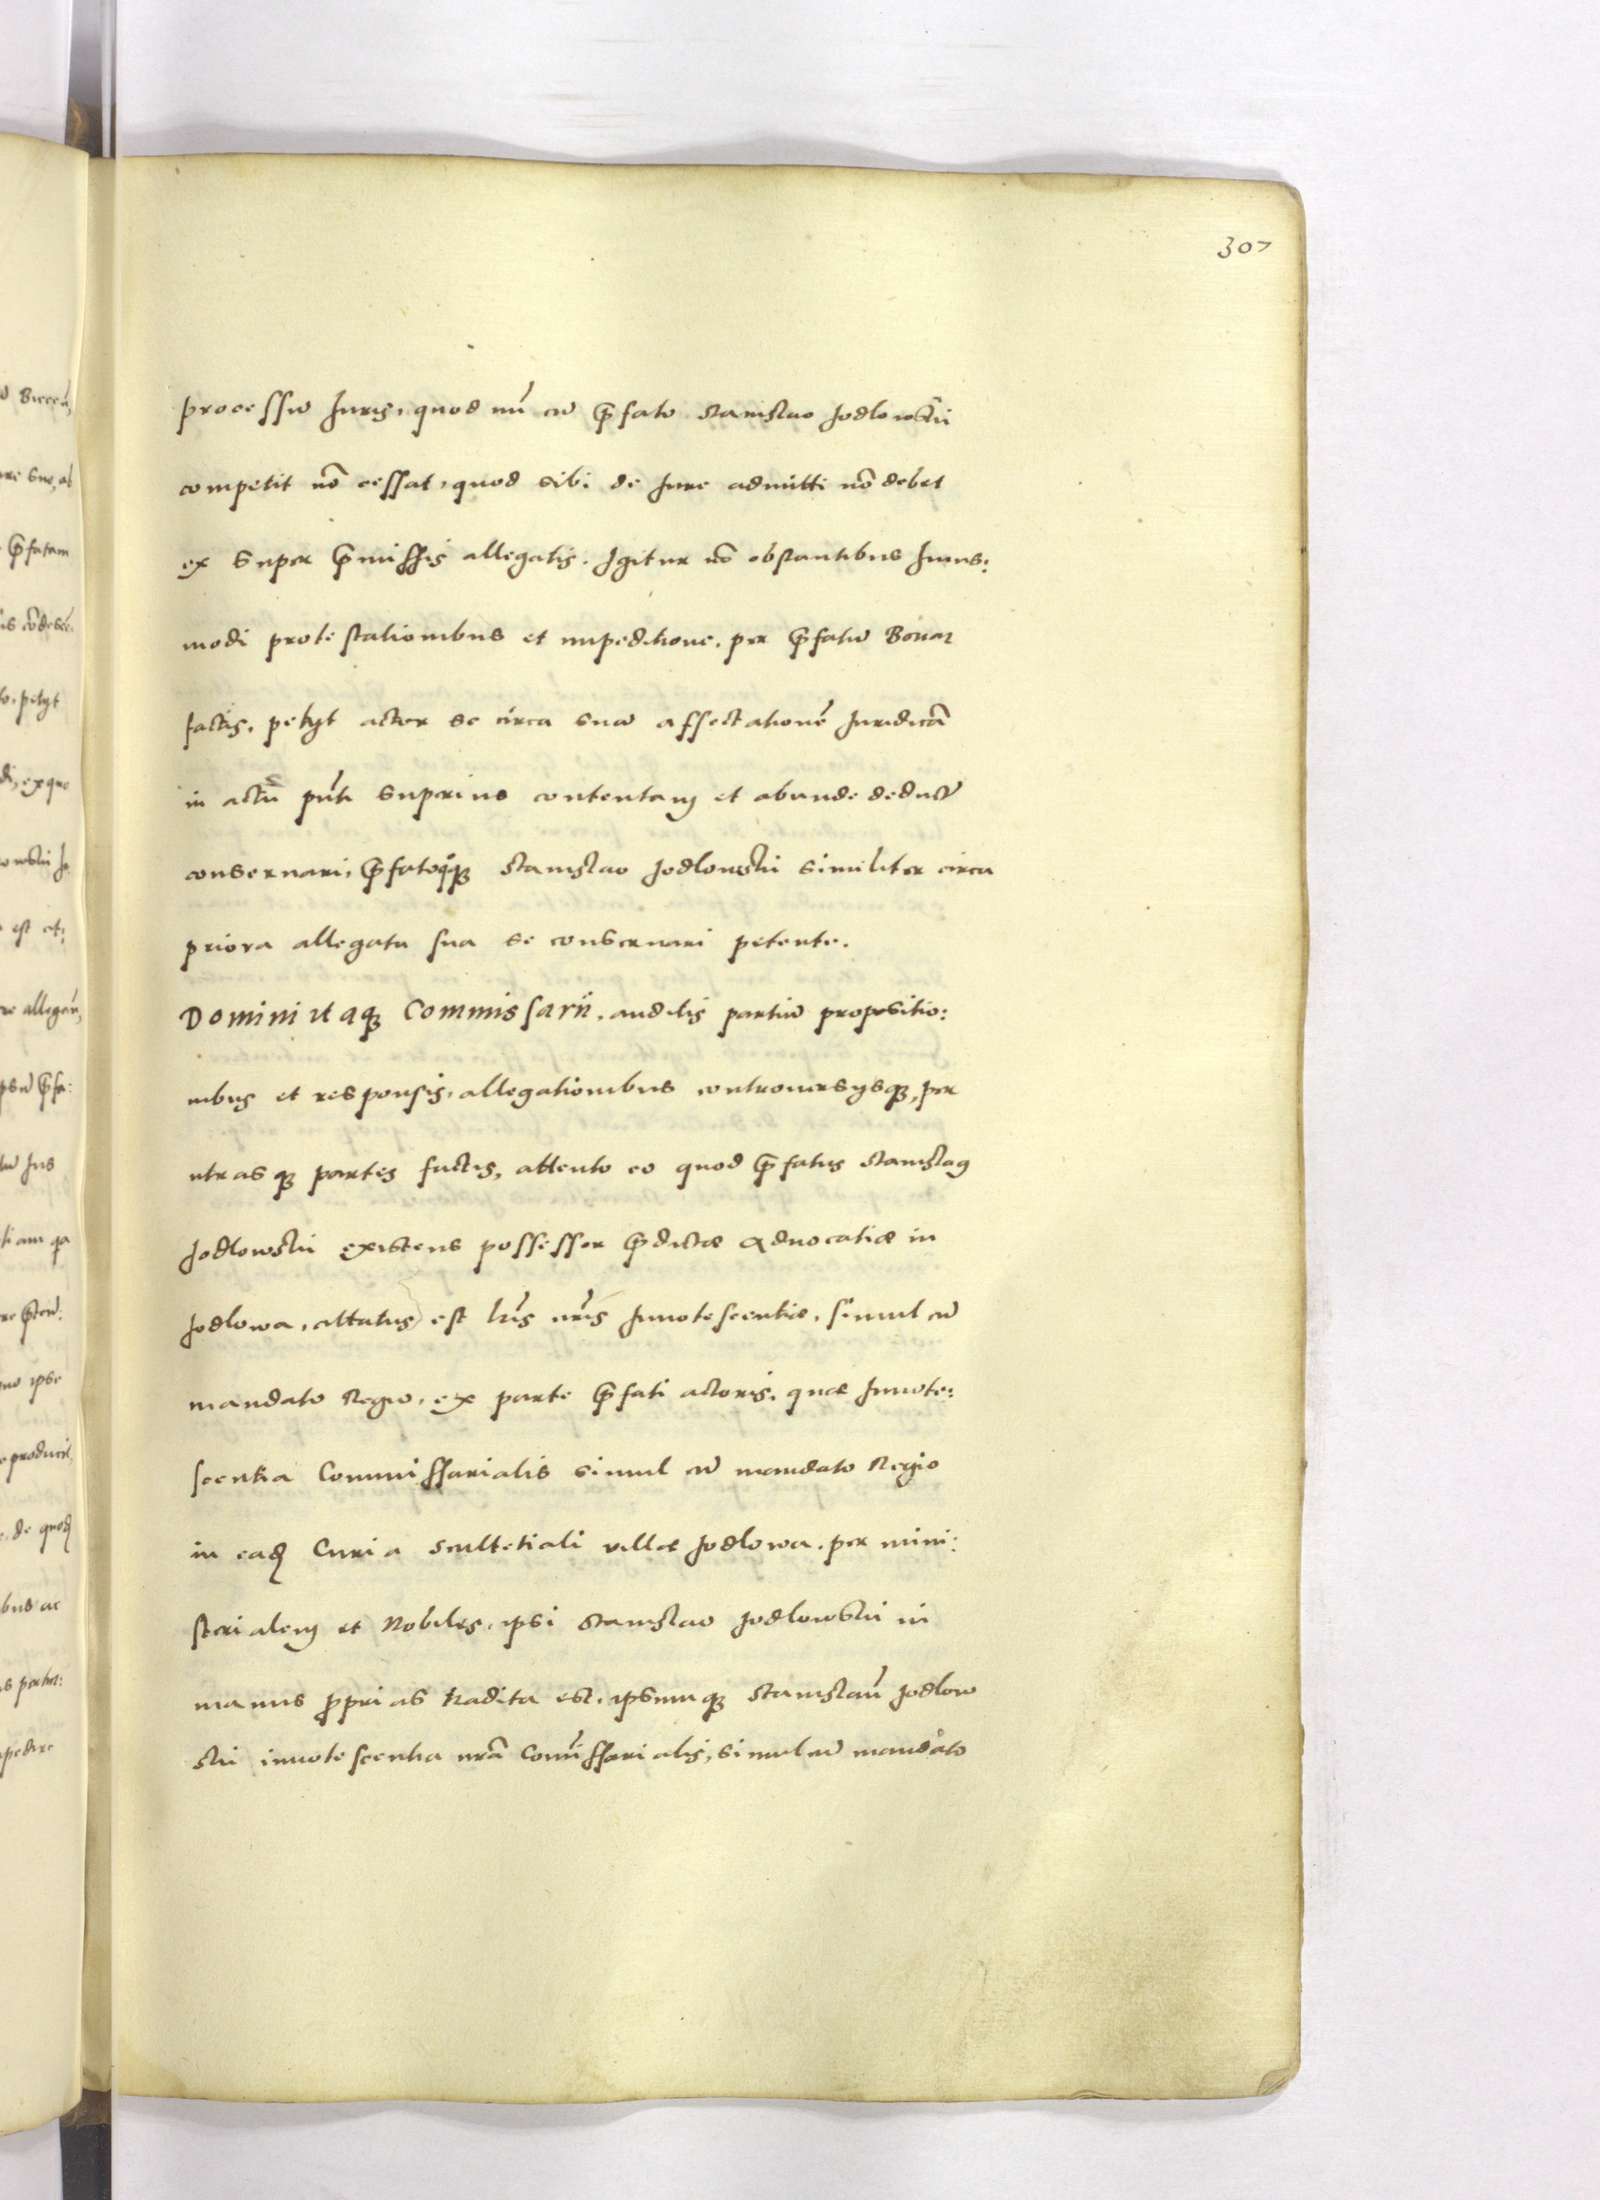 307
processu Juris, quod nũ cũ p̃fato Stanislao Jodlowskÿ
competit nõ cessat, quod sibi de Jure admitti nõ debet
ex super p̃missis allegatis. Igitur nõ obstantibus huius:
modi protestationibus et impeditione, per p̃fatũ Bonar
factis, petÿt actor se circa suã affectationẽ Juridicã
in actũ pñti superius contentam et abunde deductã
conservari, p̃fatoq̃ꝫ Stanislao Jodlowskÿ similiter circa
priora allegata sua se conservari petente.
Domini itaqꝫ Commissarii, auditis partiũ propositio:
nibus et responsis, allegationibus controversÿsqꝫ, per
utrasqꝫ partes factis, attento eo quod p̃fatus Stanislaus
Jodlowskÿ existens possessor p̃dictæ Advocatiæ in
Jodlowa, citatus est lr̃is nr̃is Innotescentiæ, simul cũ
mandato Regio, ex parte p̃fati actoris, quæ Innote:
scentia Commissarialis simul cũ mandato Regio
in eadẽ Curia scultetiali villæ Jodlowa, per mini:
sterialem et Nobiles, ipsi Stanislao Jodlowskÿ in
manus p̃prias tradita est, ipsumqꝫ Stanislaũ Jodlow
skÿ innotescentia nr̃a Com̃issarialis, simul cũ mandato